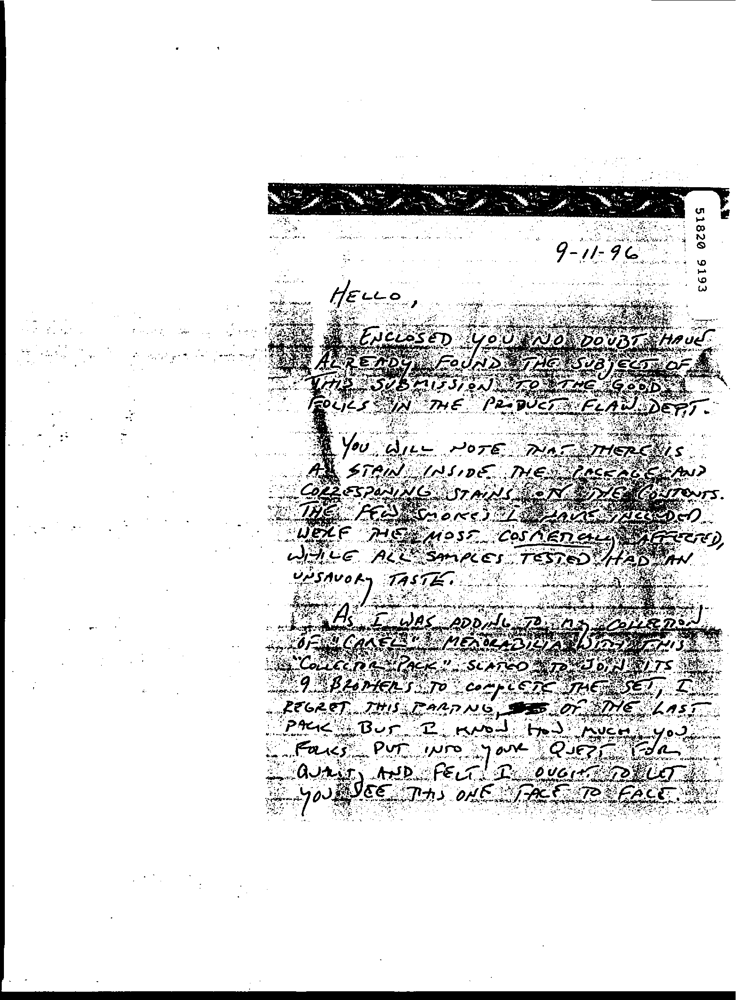 51820 9193
9-11-96
HELLO,
ENCLOSED YOU NO DOUBT HAVE
ALREADY FOUND THE SUBJECT OF
THIS SUBMISSION TO THE GOOD
FOLKS IN THE PRODUCT FLAW DEPT.
YOU WILL NOTE THAT THERE IS
A STAIN INSIDE THE PACKAGE AND
CORRESPONING STAINS ON THE CONTENTS.
THE FEW SMOKES I HAVE INCLUDED
WERE THE MOST COSMETICALLY AFFECTED,
WHILE ALL SAMPLES TESTED HAD AN
UNSAVORY TASTE.
AS I WAS ADDING TO MY COLLECTION
OF "CAMEL" MEMORABILIA WITH THIS
"COLLECTOR PACK" SLATED TO JOIN ITS
9 BROTHERS TO COMPLETE THE SET, I
REGRET THIS PARTING, OF THE LAST
PACK BUT I KNOW HOW MUCH YOU
FOLKS PUT INTO YOUR QUEST FOR
QUALITY AND FELT I OUGHT TO LET
YOU SEE THIS ONE FACE TO FACE.